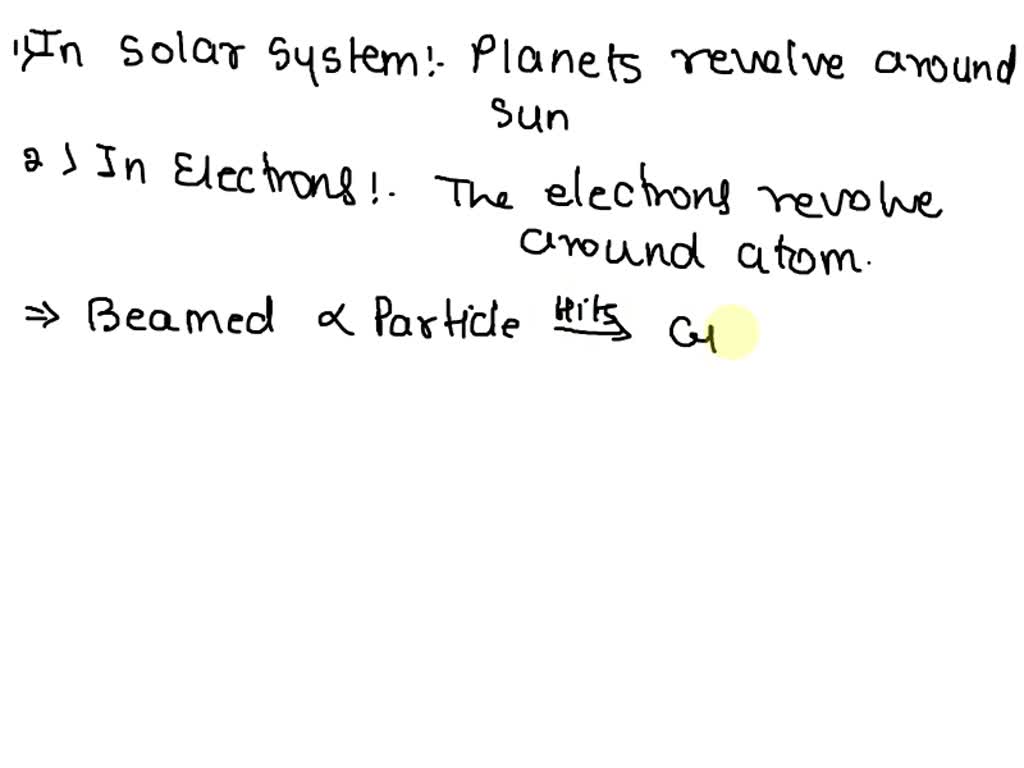 1) In Solar System:- Planets revolve around
sun
2) In Electrons:- The electrons revolve
around atom.
⇒ Beamed α Particle Hits →